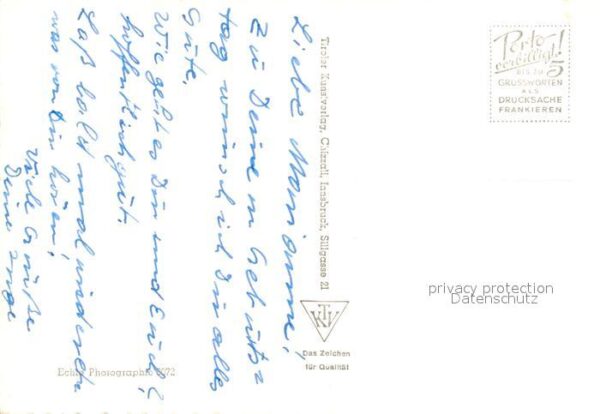 Liebe Marianne!
Zu Deinem Geburts=
tag wünsch ich Dir alles
Gute.
Wie geht es Dir und Euch?
hoffentlich gut.
Laß bald mal wieder etw.
was von Dir hören!
Viele Grüße
Deine Inge
Tiroler Kunstverlag, Chizzali, Innsbruck, Sillgasse 21
TKV
Das Zeichen
für Qualität
Echte Photographie 672
Porto
verbilligt!
BIS ZU 5
GRUSSWORTEN
ALS
DRUCKSACHE
FRANKIEREN
privacy protection
Datenschutz